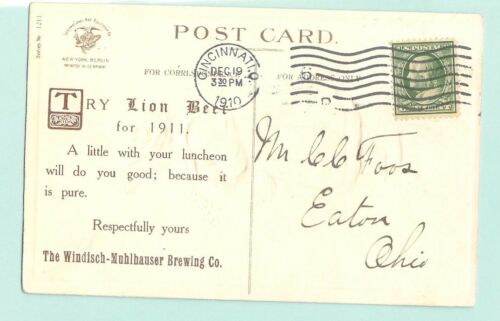 Series No. 1211
NEW YORK, BERLIN
PRINTED IN GERMANY
POST CARD.
CINCINNATI, O.
DEC 19
3 30 PM
1910
U.S. POSTAGE
FOR CORRES
FOR ADDRESS ONLY
TRY Lion Beer
for 1911.
A little with your luncheon
will do you good; because it
is pure.
Respectfully yours
The Windisch-Muhlhauser Brewing Co.
Mr CC Foos
Eaton
Ohio